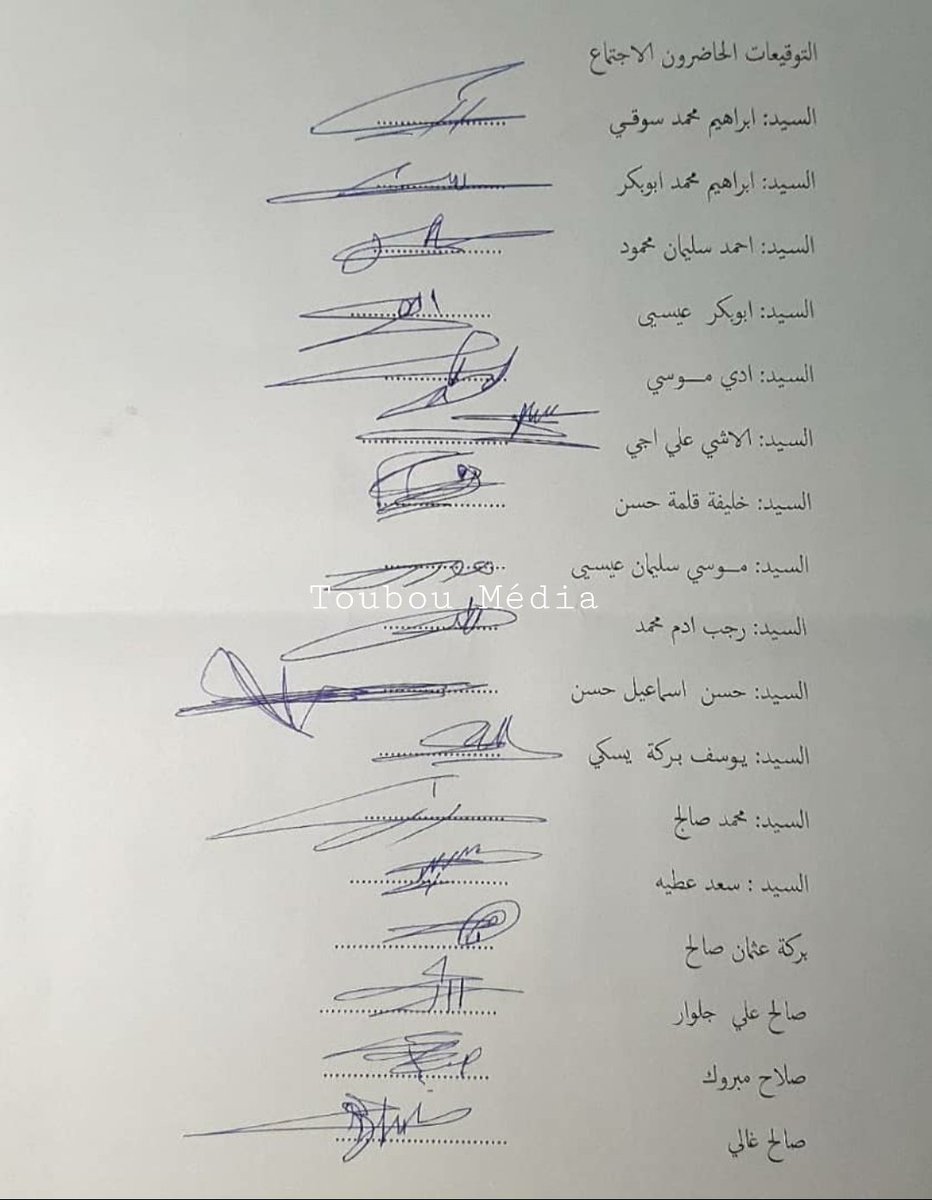 التوقيعات الحاضرون الاجتماع
السيد: ابراهيم محمد سوقي
السيد: ابراهيم محمد ابوبكر
السيد: احمد سليمان محمود
السيد: ابوبكر عيسيى
السيد: ادي مـــوسي
السيد: الاشي علي اجي
السيد: خليفة قلمة حسن
السيد: مـــوسي سليمان عيسيى
Toubou Média
السيد: رجب ادم محمد
السيد: حسن اسماعيل حسن
السيد: يوسف بركة يسكي
السيد: محمد صالح
السيد : سعد عطيه
بركة عثمان صالح
صالح علي جلوار
صلاح مبروك
صالح غالي